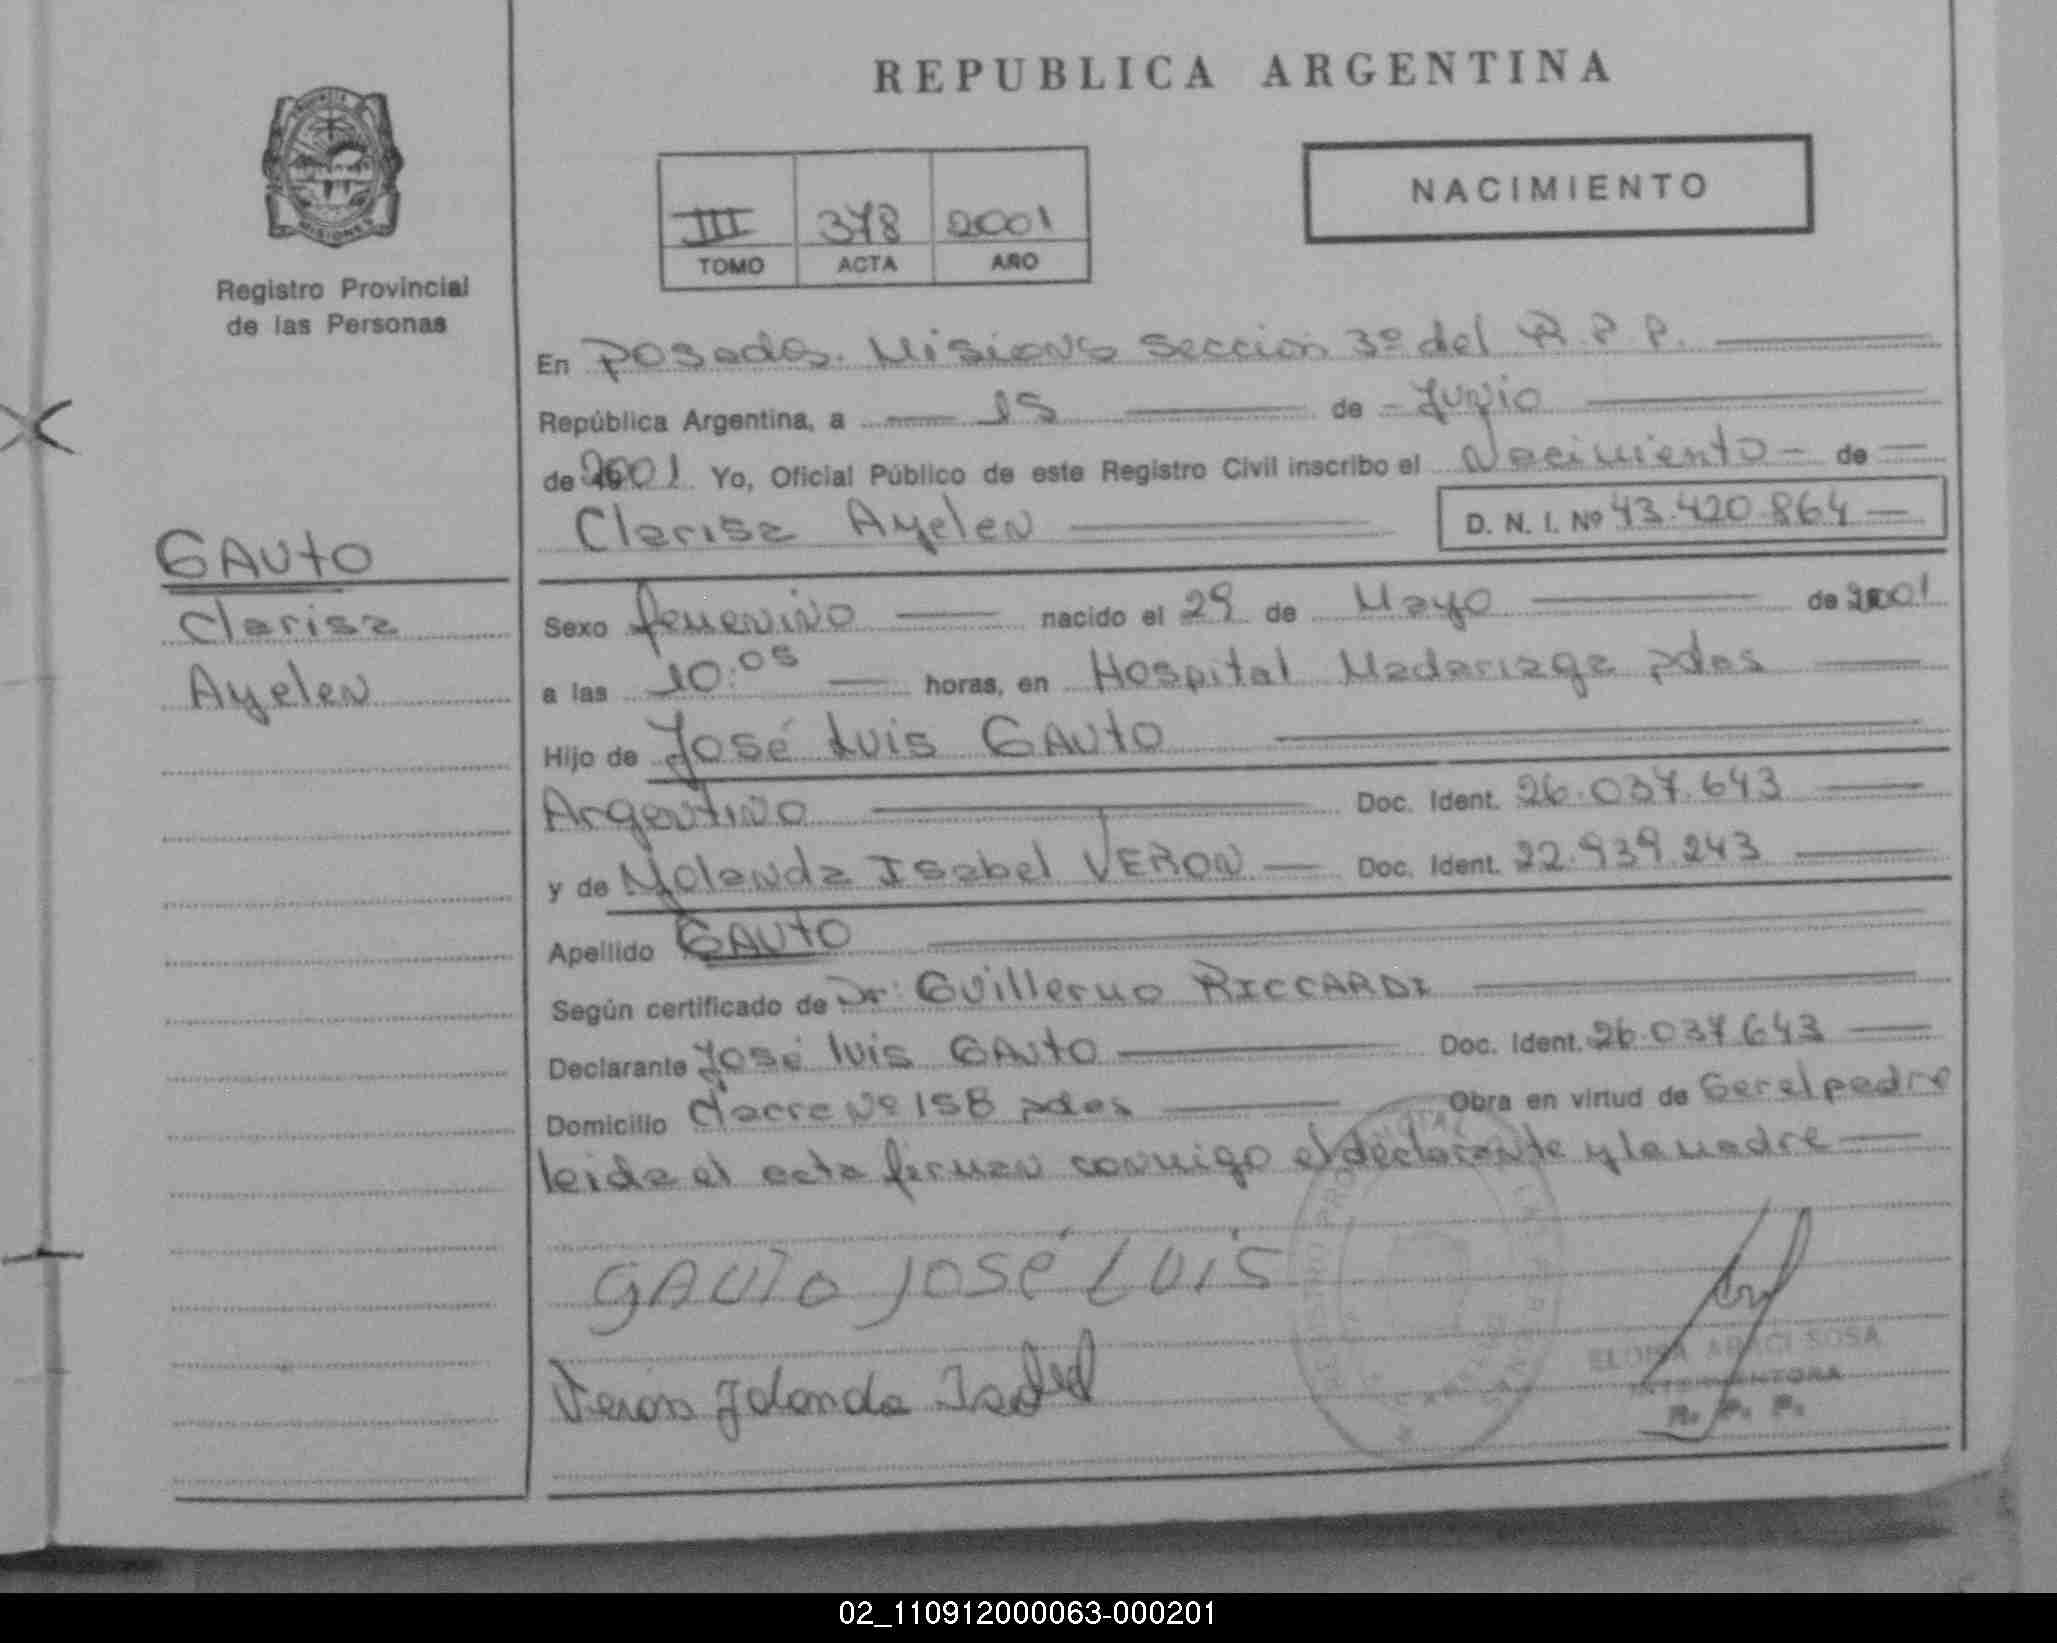 REPUBLICA ARGENTINA
NACIMIENTO
III 378 2001
TOMO ACTA AÑO
Registro Provincial
de las Personas
En Posadas. Misiones Sección 3º del R. P. P.
República Argentina, a 15 de Junio
de 2001 Yo, Oficial Público de este Registro Civil inscribo el Nacimiento de
Clarisa Ayelen D. N. I. Nº 43.420.864
GAUTO
Clarisa
Ayelen
Sexo femenino nacido el 29 de Mayo de 2001
a las 10:05 horas, en Hospital Madariaga pdas
Hijo de José Luis GAUTO
Argentino Doc. Ident. 26.037.643
y de Yolanda Isabel VERON Doc. Ident. 22.939.243
Apellido GAUTO
Según certificado de Dr: Guillermo RICCARDI
Declarante José luis GAUTO Doc. Ident. 26.037.643
Domicilio chacra Nº 158 pdas Obra en virtud de Ser el padre
leida el acta firman conmigo el declarante y la madre
GAUTO JOSÉ LUIS
Veron Jolanda Isabel
ARACI SOSA
INTERVENTORA
R. P. P.
02_110912000063-000201